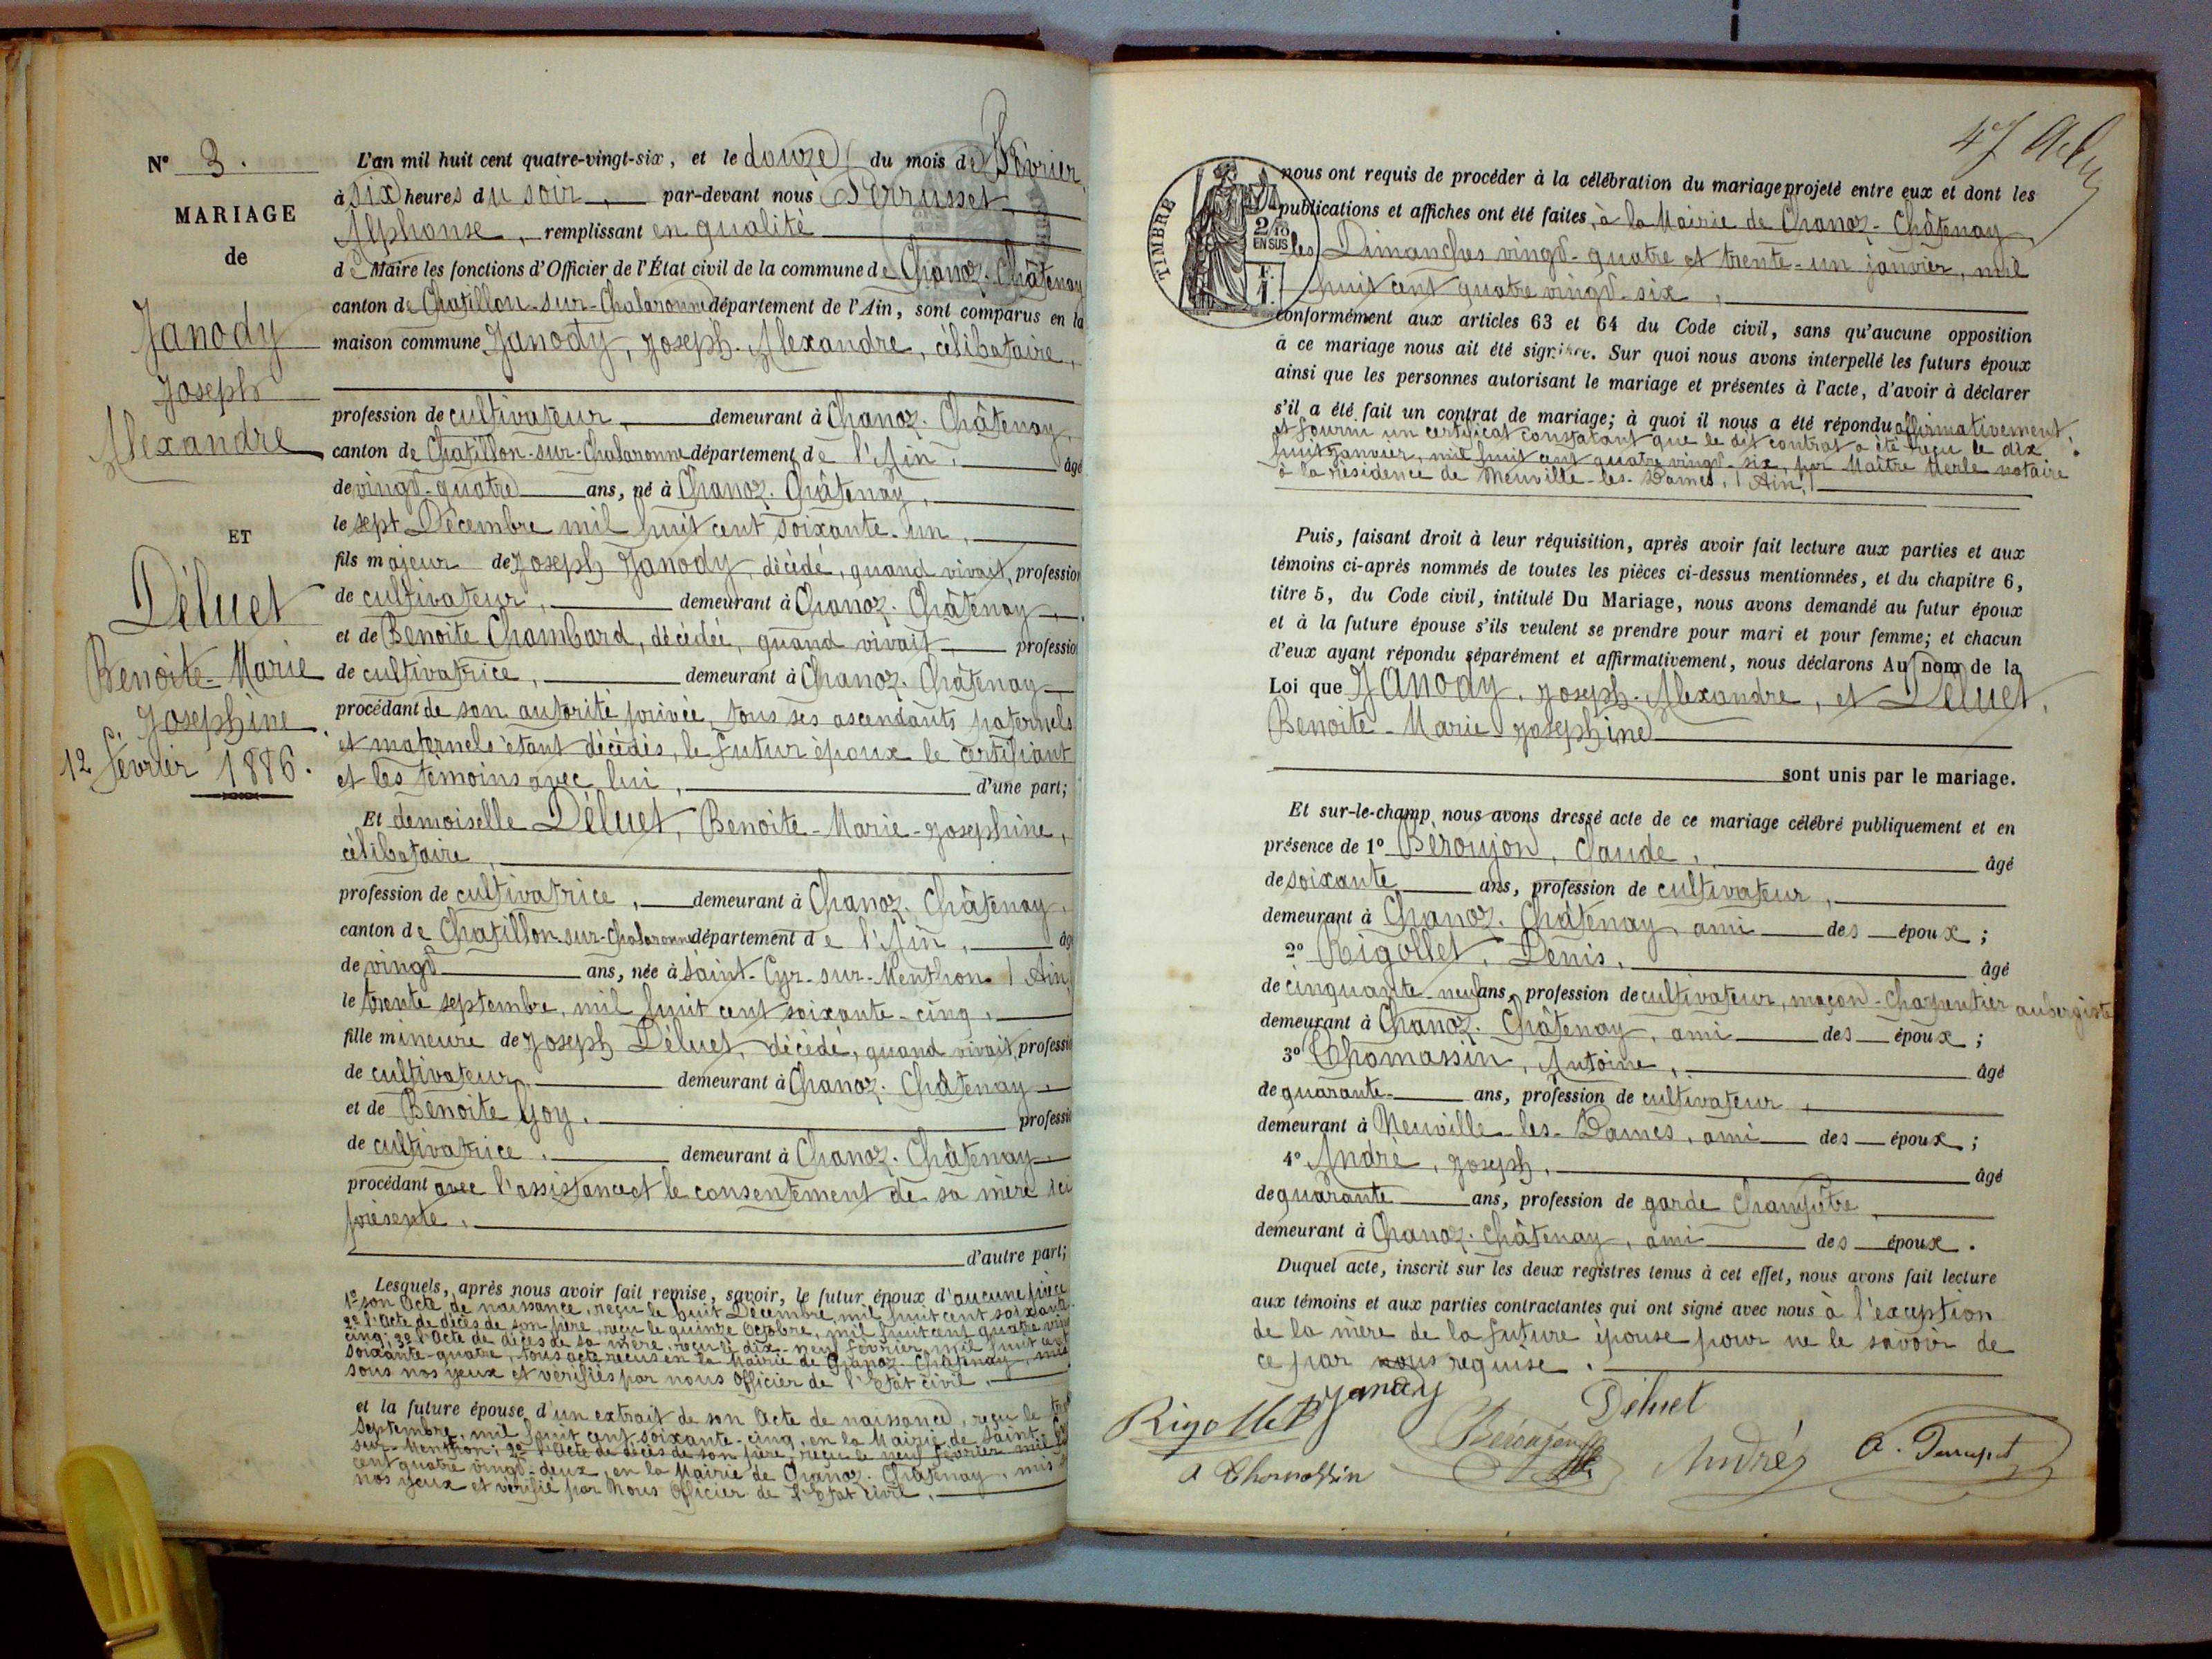 N° 3.
MARIAGE
de
Janody
Joseph
Alexandre
ET
Déluet
Benoite-Marie
Josephine.
12 février 1886.
L'an mil huit cent quatre-vingt-six, et le douze du mois de Février,
à six heures du soir, par-devant nous Perrusset,
Alphonse, remplissant en qualité
de Maire les fonctions d'Officier de l'État civil de la commune de Chanoz-Châtenay
canton de Chatillon-sur-Chalaronne département de l'Ain, sont comparus en la
maison commune Janody, Joseph-Alexandre, célibataire,
profession de cultivateur, demeurant à Chanoz-Châtenay,
canton de Chatillon-sur-Chalaronne département de l'Ain, âgé
de vingt-quatre ans, né à Chanoz-Châtenay,
le sept Décembre mil huit cent soixante-un,
fils majeur de Joseph Janody, décédé, quand vivait, profession
de cultivateur, demeurant à Chanoz-Châtenay,
et de Benoite Chambard, décédée, quand vivait, professio
de cultivatrice, demeurant à Chanoz-Châtenay
procédant de son autorité privée, tous ses ascendants paternels
et maternels étant décédés, le futur époux le certifiant
et les témoins avec lui, d'une part;
Et demoiselle Déluet, Benoite-Marie-Josephine,
célibataire,
profession de cultivatrice, demeurant à Chanoz-Châtenay,
canton de Chatillon-sur-Chalaronne département de l'Ain, âg
de vingt ans, née à Saint-Cyr-sur-Menthon (Ain)
le trente septembre, mil huit cent soixante-cinq,
fille mineure de Joseph Déluet, décédé, quand vivait, professi
de cultivateur, demeurant à Chanoz-Châtenay,
et de Benoite Goy, professi
de cultivatrice, demeurant à Chanoz-Châtenay,
procédant avec l'assistance et le consentement de sa mère ici
présente,
d'autre part;
Lesquels, après nous avoir fait remise, savoir, le futur époux d'aucune pièce
1° son Acte de naissance, reçu le huit Décembre, mil huit cent soixante
2° l'Acte de décès de son père, reçu le quinze Octobre, mil huit cent quatre vin
cinq; 3° l'Acte de décès de sa mère, reçu le dix-neuf février, mil huit cent
soixante-quatre, tous acte reçus en la Mairie de Chanoz-Châtenay, mis
sous nos yeux et vérifiés par nous Officier de l'Etat civil,
et la future épouse, d'un extrait de son Acte de naissance, reçu le
Septembre, mil huit cent soixante-cinq, en la Mairie de Saint-
sur-Menthon; 2° l'Acte de décès de son père, reçu le neuf février mil
cent quatre vingt-deux, en la Mairie de Chanoz-Châtenay, mis
nos yeux et vérifié par Nous Officier de l'Etat civil,
47
TIMBRE
2/10
EN SUS
nous ont requis de procéder à la célébration du mariage projeté entre eux et dont les
publications et affiches ont été faites, à la Mairie de Chanoz-Châtenay
les Dimanches vingt-quatre et trente-un janvier, mil
huit cent quatre vingt-six,
conformément aux articles 63 et 64 du Code civil, sans qu'aucune opposition
à ce mariage nous ait été signifiée. Sur quoi nous avons interpellé les futurs époux
ainsi que les personnes autorisant le mariage et présentes à l'acte, d'avoir à déclarer
s'il a été fait un contrat de mariage; à quoi il nous a été répondu affirmativement,
et fourni un certificat constatant que le dit contrat a été reçu le dix
huit janvier, mil huit cent quatre vingt-six, par Maître Merle notaire
à la résidence de Neuville-les-Dames, (Ain,)
Puis, faisant droit à leur réquisition, après avoir fait lecture aux parties et aux
témoins ci-après nommés de toutes les pièces ci-dessus mentionnées, et du chapitre 6,
titre 5, du Code civil, intitulé Du Mariage, nous avons demandé au futur époux
et à la future épouse s'ils veulent se prendre pour mari et pour femme; et chacun
d'eux ayant répondu séparément et affirmativement, nous déclarons Au nom de la
Loi que Janody, Joseph-Alexandre, et Déluet,
Benoite-Marie Josephine
sont unis par le mariage.
Et sur-le-champ nous avons dressé acte de ce mariage célébré publiquement et en
présence de 1° Béroujon, Claude, âgé
de soixante ans, profession de cultivateur,
demeurant à Chanoz-Châtenay, ami des époux;
2° Rigollet, Denis, âgé
de cinquante-neuf ans, profession de cultivateur, maçon-charpentier aubergiste
demeurant à Chanoz-Châtenay, ami des époux;
3° Thomassin, Antoine, âgé
de quarante ans, profession de cultivateur,
demeurant à Neuville-les-Dames, ami des époux;
4° André, Joseph, âgé
de quarante ans, profession de garde champêtre,
demeurant à Chanoz-Châtenay, ami des époux.
Duquel acte, inscrit sur les deux registres tenus à cet effet, nous avons fait lecture
aux témoins et aux parties contractantes qui ont signé avec nous à l'exception
de la mère de la future épouse pour ne le savoir de
ce par nous requise.
Rigollet Janody Déluet
Béroujon André
A Thomassin